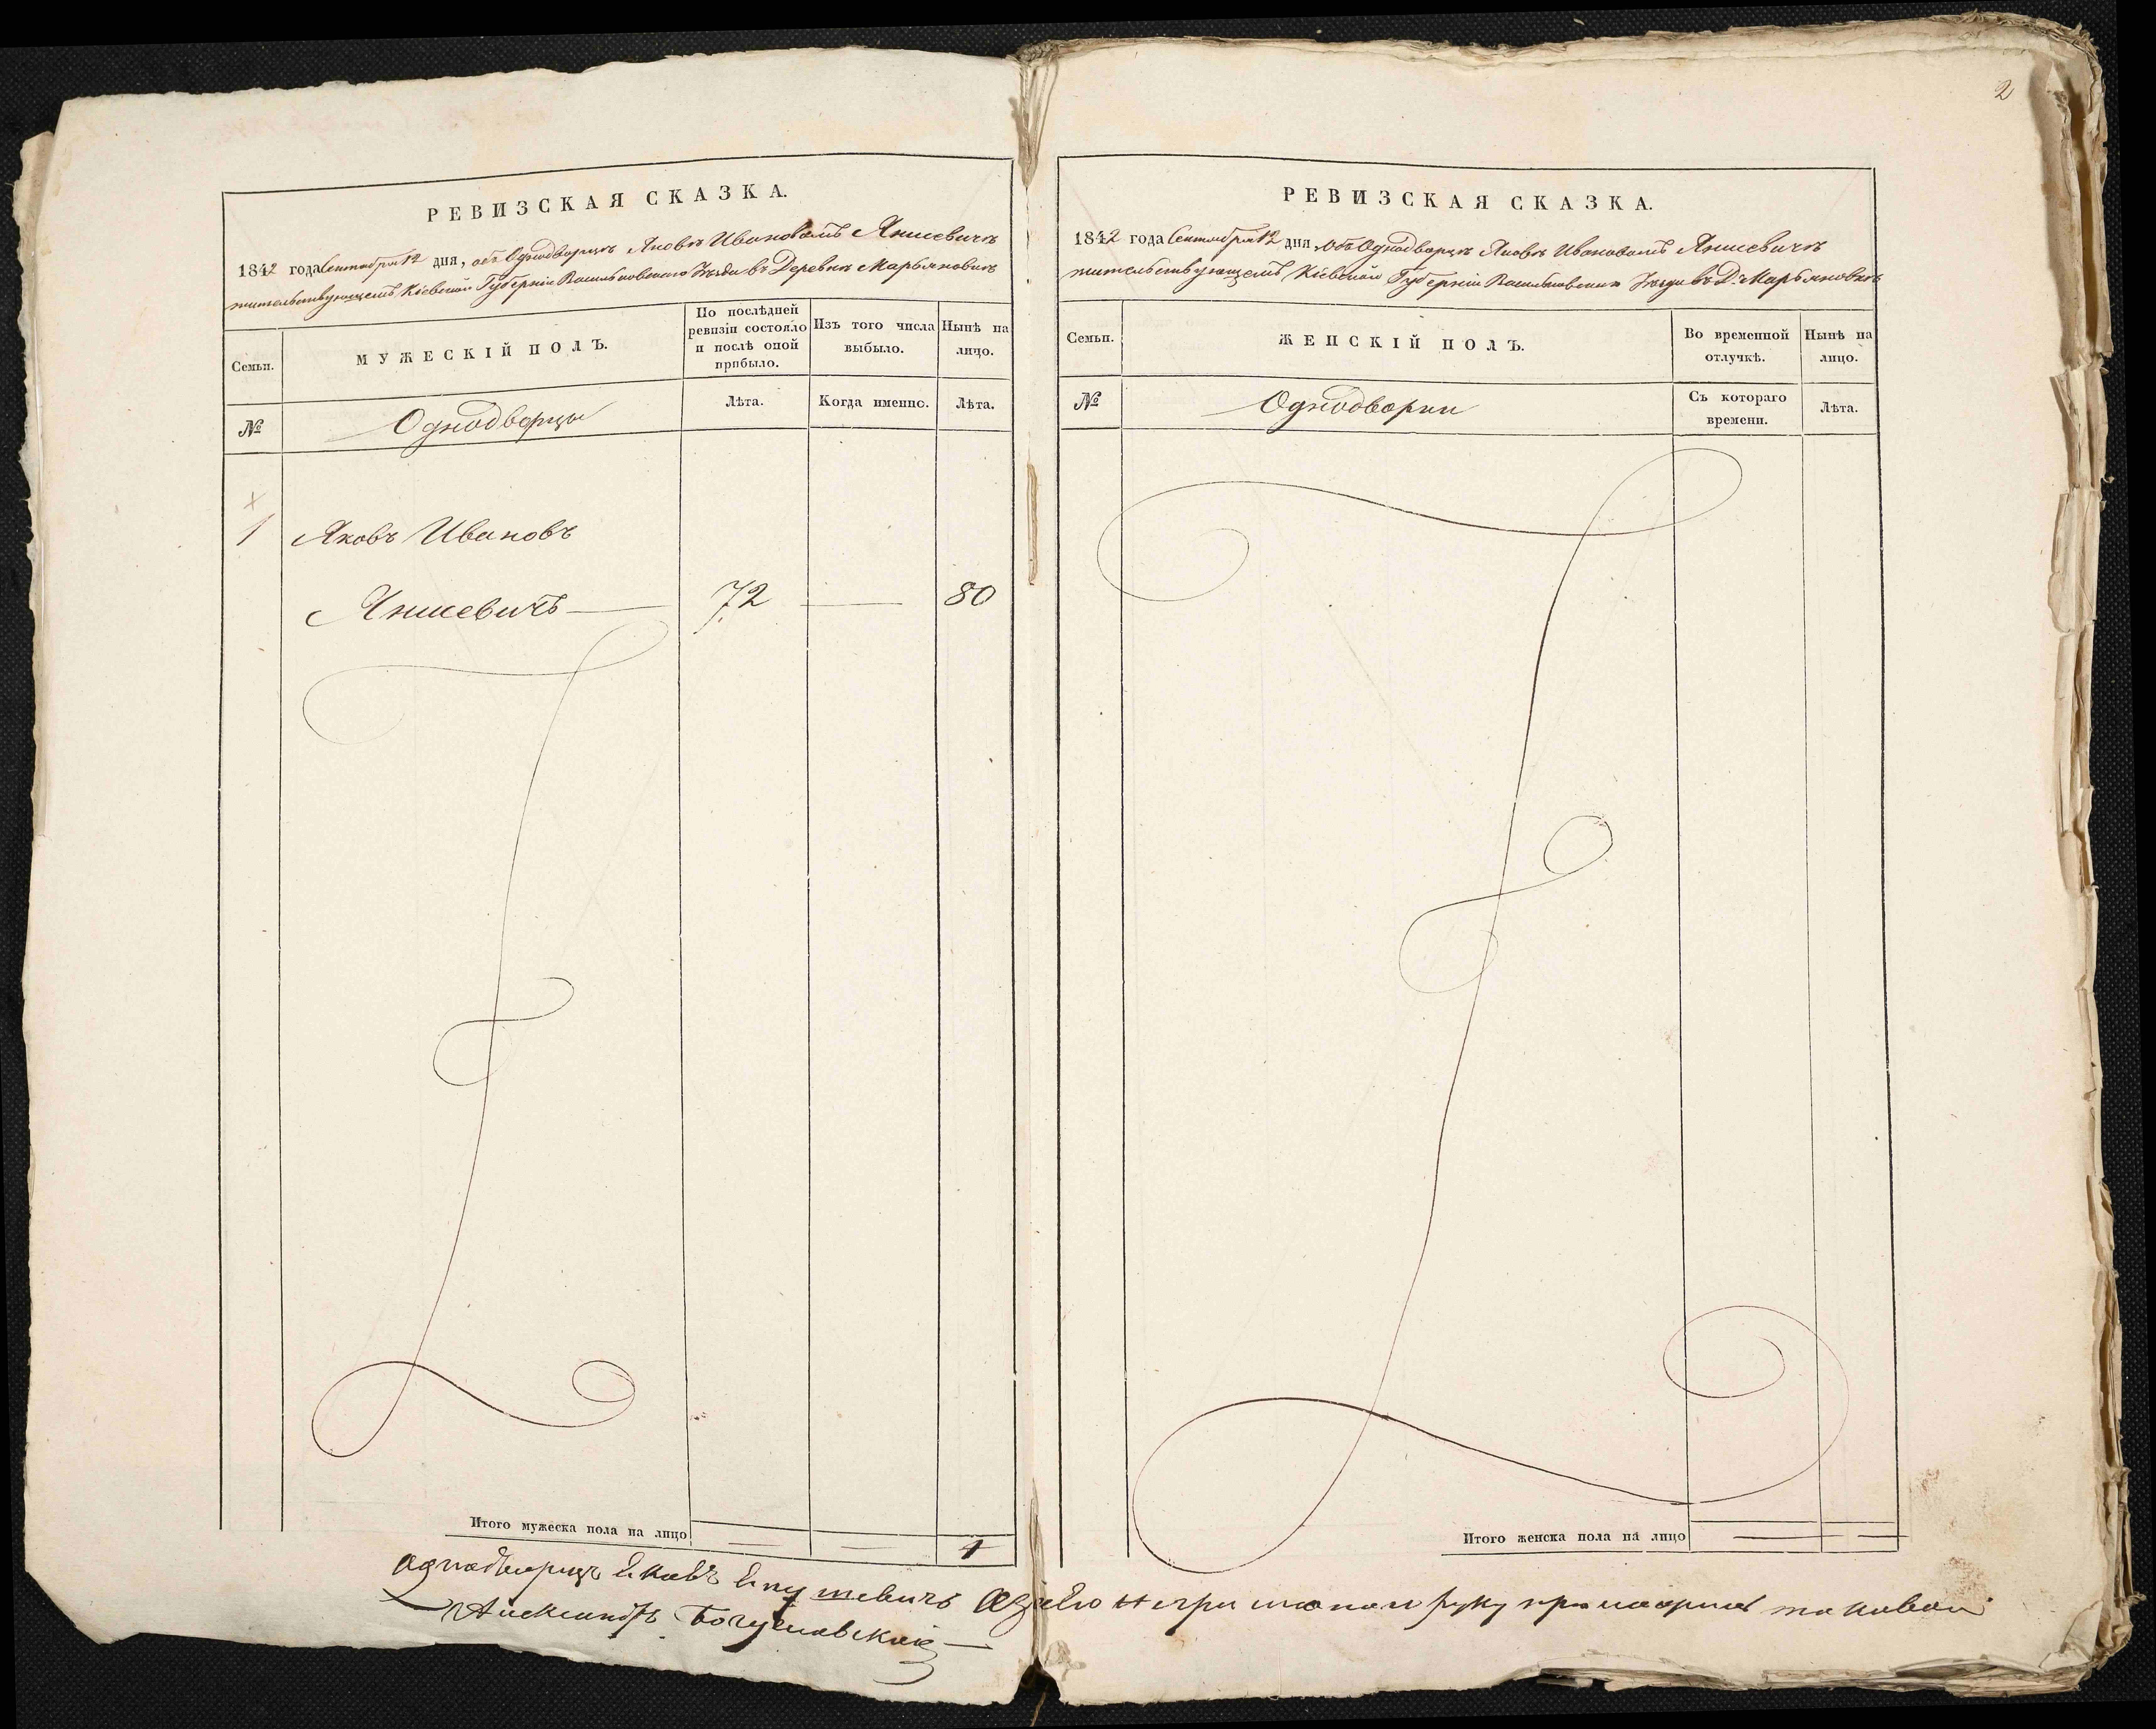 2
РЕВИЗСКАЯ СКАЗКА.
1842 года Сентября 12 дня, объ Однодворцѣ Яковѣ Ивановомъ Янишевичѣ
жительствующемъ Кіевской Губерніи Васильковскаго Уѣзда въ Деревнѣ Марьяновкѣ
Семьи.
МУЖЕСКІЙ ПОЛЪ.
По послѣдней
ревизіи состояло
и послѣ оной
прибыло.
Изъ того числа
выбыло.
Нынѣ на
лицо.
№
Однодворцы
Лѣта.
Когда именно.
Лѣта.
1
Яковъ Ивановъ
Янишевичъ
72
80
Итого мужеска пола на лицо
1
РЕВИЗСКАЯ СКАЗКА.
1842 года Сентября 12 дня, объ Однодворцѣ Яковѣ Ивановомъ Янишевичѣ
жительствующемъ Кіевской Губерніи Васильковскаго Уѣзда въ Д. Марьяновкѣ
Семьи.
ЖЕНСКІЙ ПОЛЪ.
Во временной
отлучкѣ.
Нынѣ на
лицо.
№
Однодворки
Съ котораго
времени.
Лѣта.
Итого женска пола на лицо
Однодворецъ руку
Александръ Богуславскій